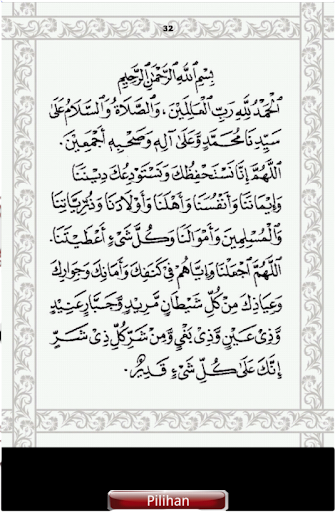 32
بِسْمِ اللَّهِ الرَّحْمَنِ الرَّحِيمِ
اَلْحَمْدُ لِلَّهِ رَبِّ الْعَالَمِيْنَ، وَالصَّلَاةُ وَالسَّلَامُ عَلَى
سَيِّدِنَا مُحَمَّدٍ وَّعَلَى آلِهِ وَصَحْبِهِ أَجْمَعِيْنَ.
اَللَّهُمَّ إِنَّا نَسْتَحْفِظُكَ وَنَسْتَوْدِعُكَ دِيْنَنَا
وَإِيْمَانَنَا وَأَنْفُسَنَا وَأَهْلَنَا وَأَوْلَادَنَا وَذُرِّيَّاتِنَا
وَالْمُسْلِمِيْنَ وَأَمْوَالَنَا وَكُلَّ شَيْءٍ أَعْطَيْتَنَا.
اَللَّهُمَّ اجْعَلْنَا وَإِيَّاهُمْ فِيْ كَنَفِكَ وَأَمَانِكَ وَجِوَارِكَ
وَعِيَاذِكَ مِنْ كُلِّ شَيْطَانٍ مَّرِيْدٍ وَّجَبَّارٍ عَنِيْدٍ
وَّذِيْ عَيْنٍ وَّذِيْ بَغْيٍ وَّمِنْ شَرِّ كُلِّ ذِيْ شَرٍّ
إِنَّكَ عَلَى كُلِّ شَيْءٍ قَدِيْرٌ.
Pilihan